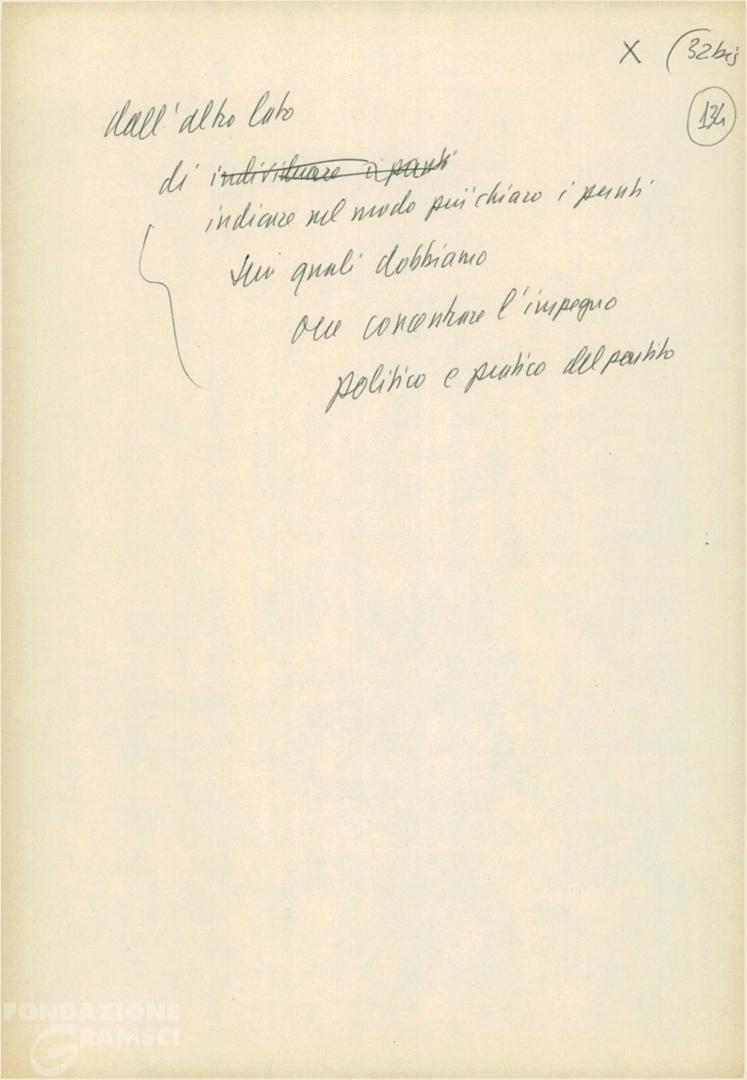 X (32bis
134
dall'altro lato
di individuare i punti
indicare nel modo più chiaro i punti
sui quali dobbiamo
ora concentrare l'impegno
politico e pratico del partito
FONDAZIONE
GRAMSCI